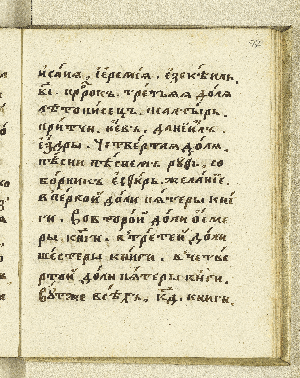 исаиа, иеремїа, езекѣиль.
в҃і пррⷪкъ. третьꙗꙗ доля
лѣтописецъ. ѱалтырь.
притчи. иѡвъ. данїилъ.
ездры. четвертая доля.
пѣсни пѣснемъ рꙋѳь. со
борникъ есѳирь. желанїе.
в первой доли пятеры кни
ги. во второй доли осме
ры книги. в третей доли
шестеры книги. в четве
ртой доли пятеры книги.
вꙋтже всѣхъ. к҃д. книги.